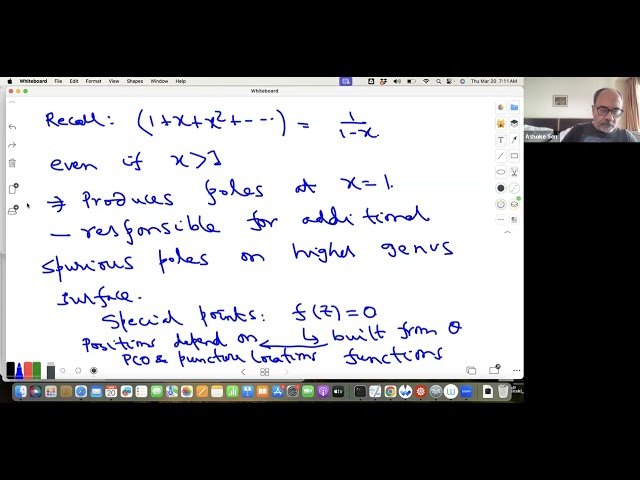 Whiteboard File Edit Format View Arrange Window Help Thu Mar 20 7:11 AM
Whiteboard
Recall: (1+x+x²+----) = 1/(1-x)
even if x>1
⇒ Produces poles at x=1.
- responsible for additional
spurious poles on higher genus
surface.
Special points: f(z)=0
Positions depend on ← ↳ built from θ
PCO & puncture locations functions
Ashoke Sen